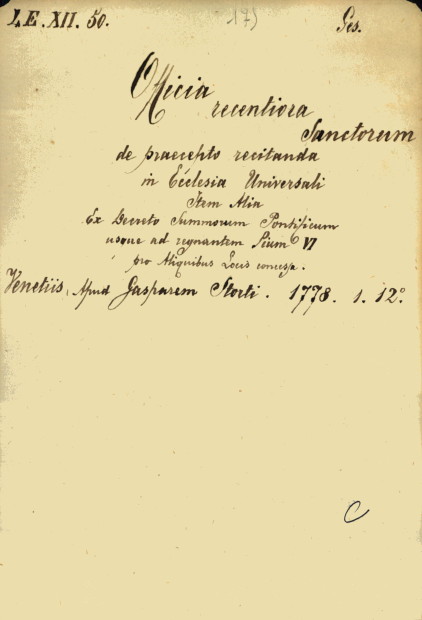 I.E.XII.50. 175 Ges.
Officia
recentiora
Sanctorum
de praecepto recitanda
in Ecclesia Universali
Item Alia
Ex Decreto Summorum Pontificum
usque ad regnantem Pium VI
pro Aliquibus Locis concessa.
Venetiis, Apud Gasparem Storti. 1778. 1. 12°.
C